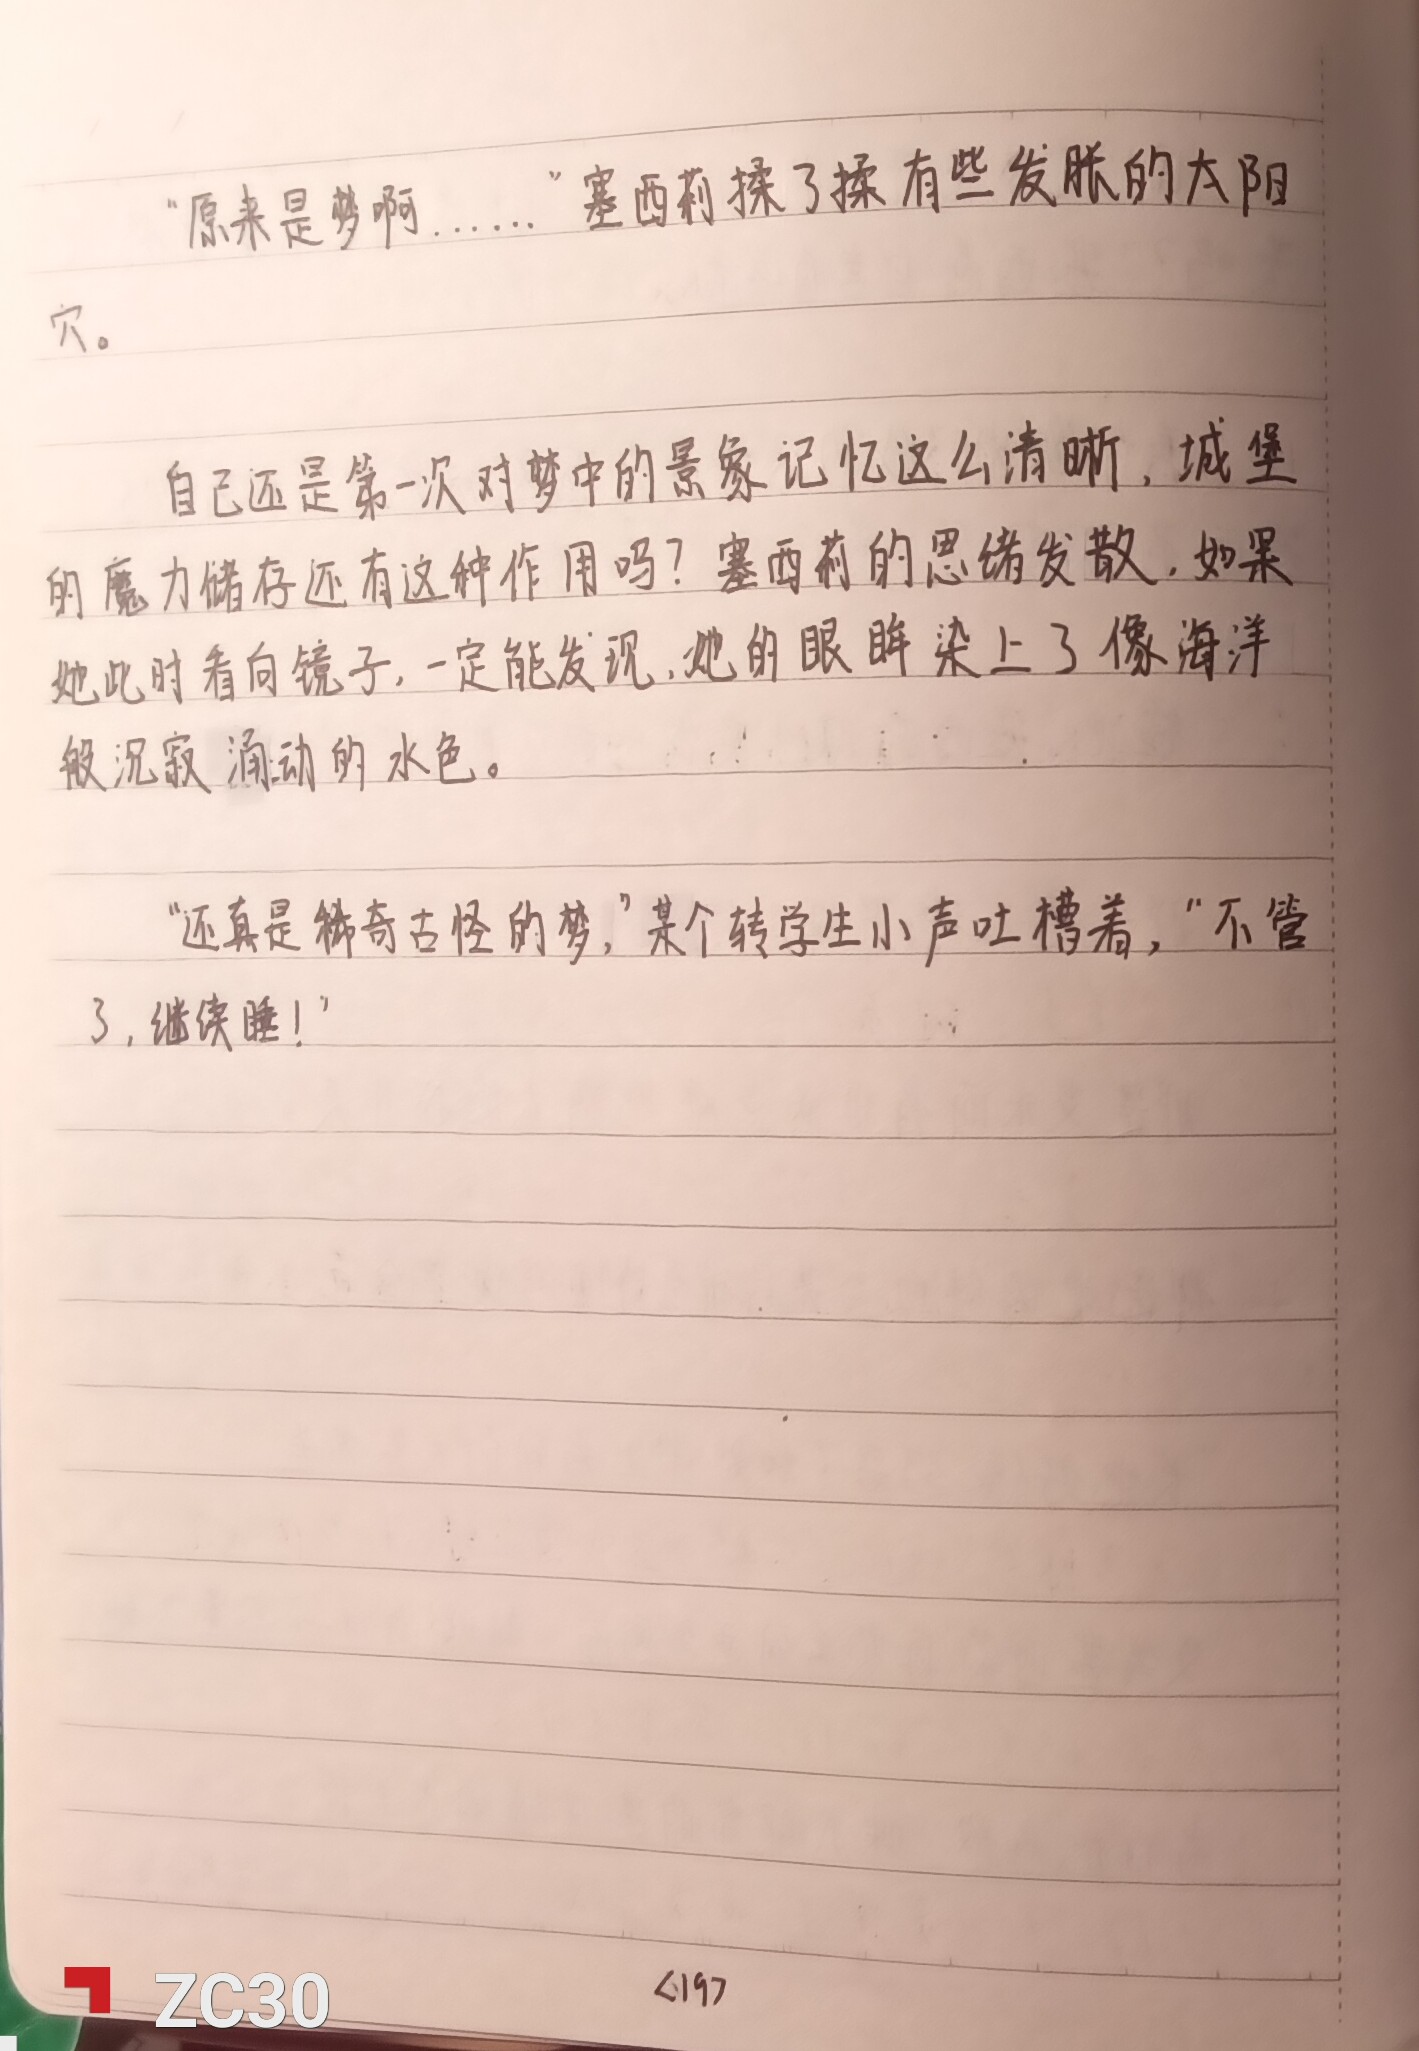 “原来是梦啊……”塞西莉揉了揉有些发胀的太阳
穴。
自己还是第一次对梦中的景象记忆这么清晰，城堡
的魔力储存还有这种作用吗？塞西莉的思绪发散，如果
她此时看向镜子，一定能发现，她的眼眸染上了像海洋
般沉寂涌动的水色。
“还真是稀奇古怪的梦，”某个转学生小声吐槽着，“不管
了，继续睡！”
<19>
ZC30